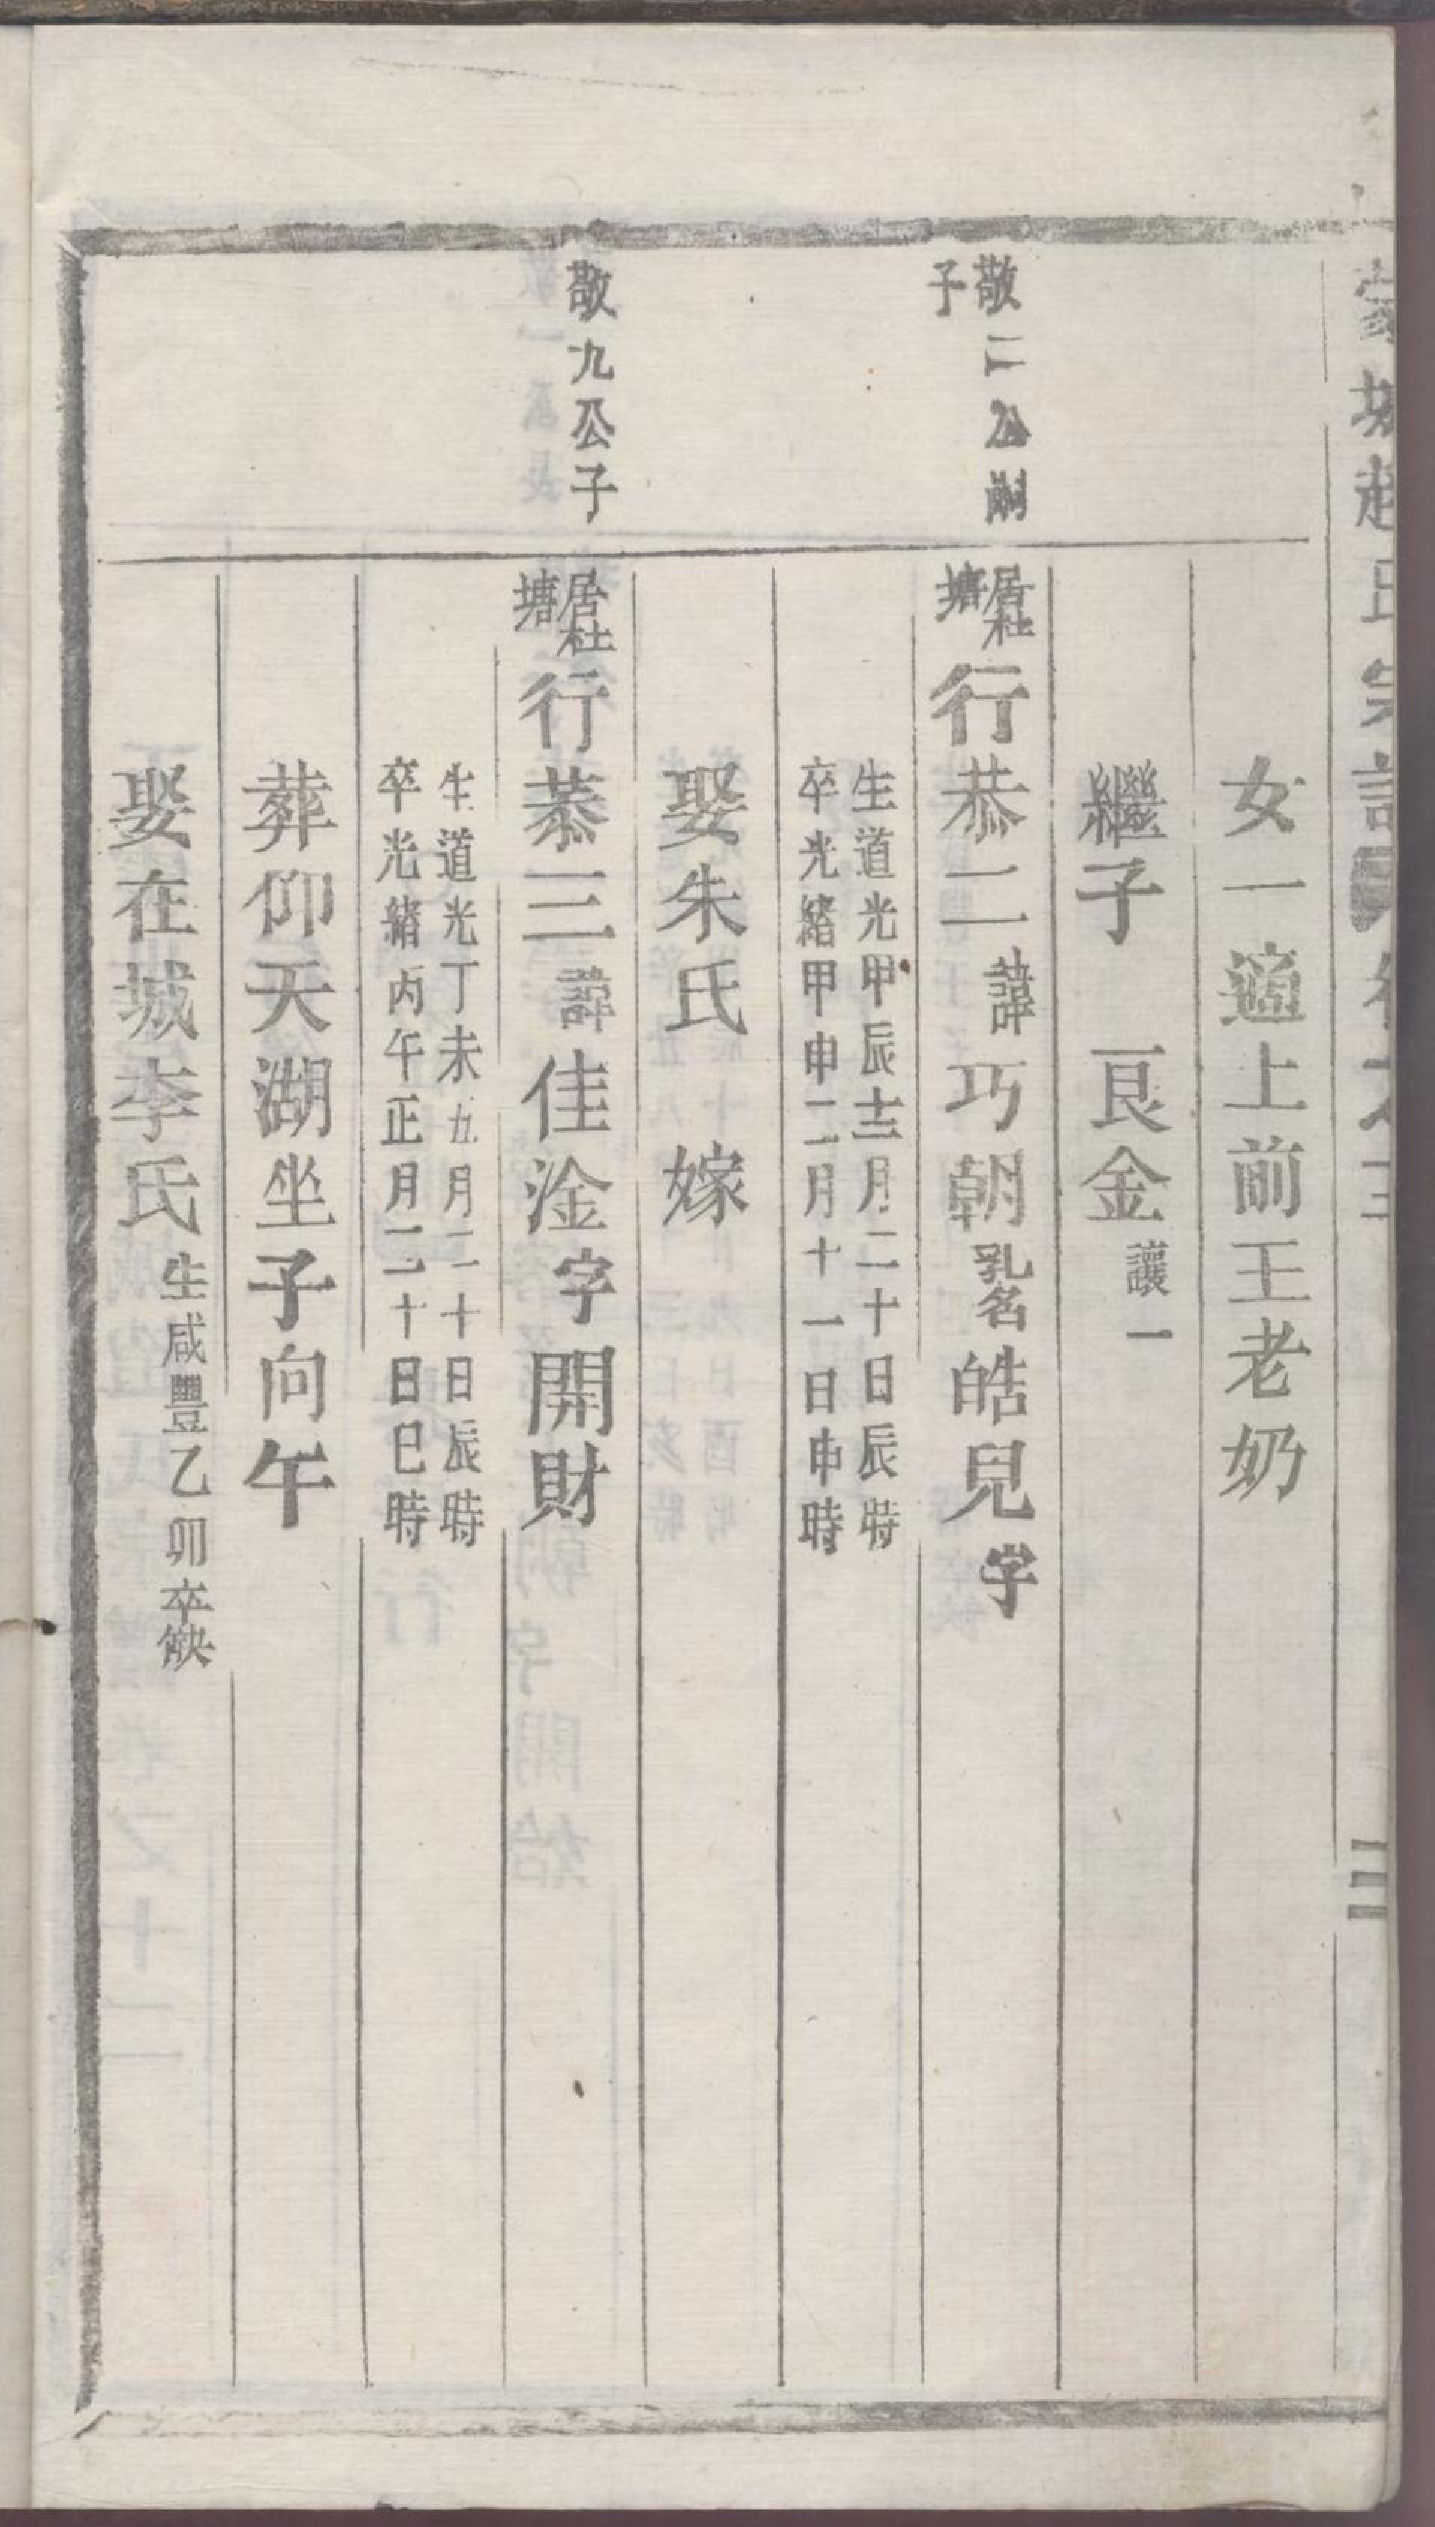 女一適上前王老奶
繼子　艮金讓一
敬二公嗣
子
居杜
塘
行恭二諱巧朝乳名皓兒字
生道光甲辰十二月二十日辰時
卒光緒甲申二月十一日申時
娶朱氏　嫁
敬九公子
居杜
塘
行恭三諱佳淦字開財
生道光丁未九月二十日辰時
卒光緒丙午正月二十日巳時
葬仰天湖坐子向午
娶在城李氏生咸豐乙卯卒缺